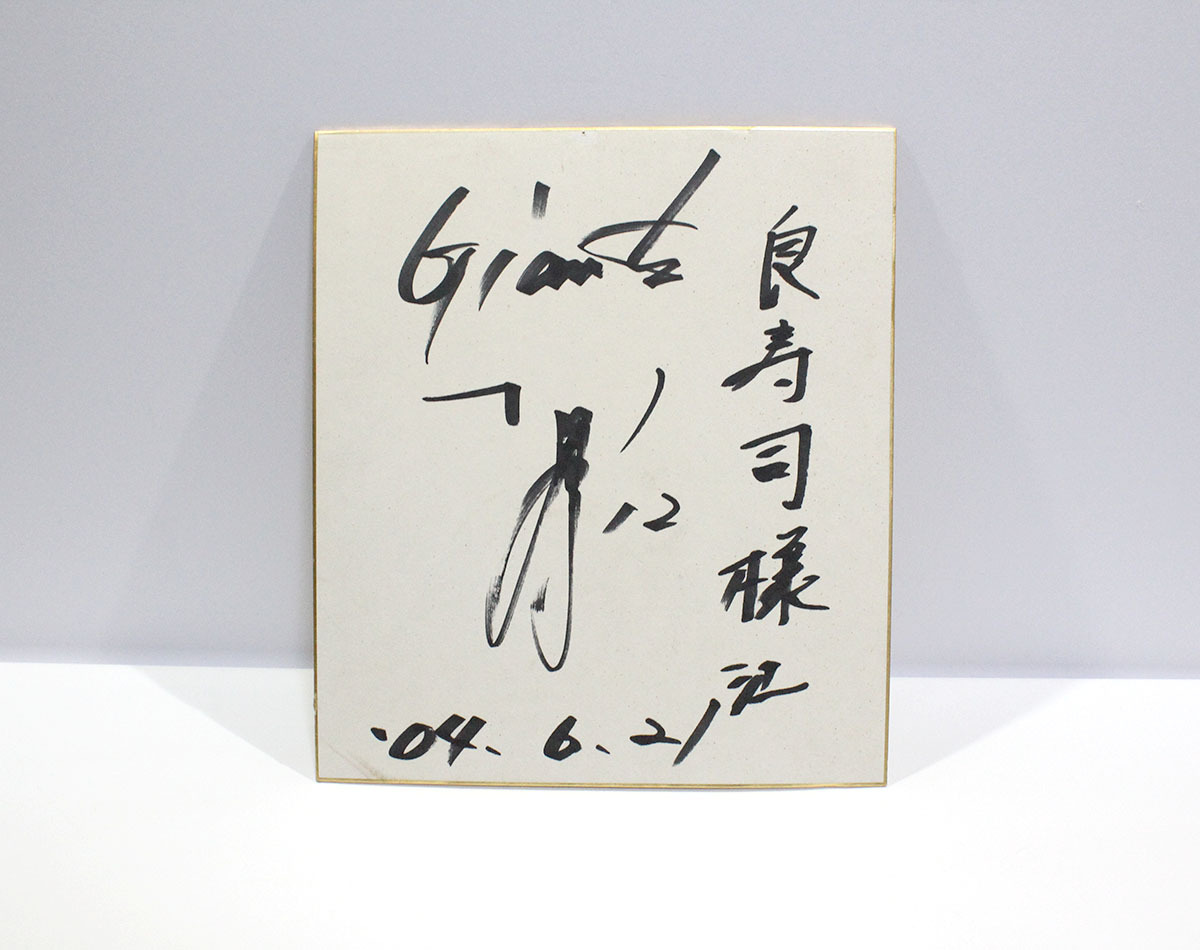 良寿司様江
Giants
12
'04.6.21